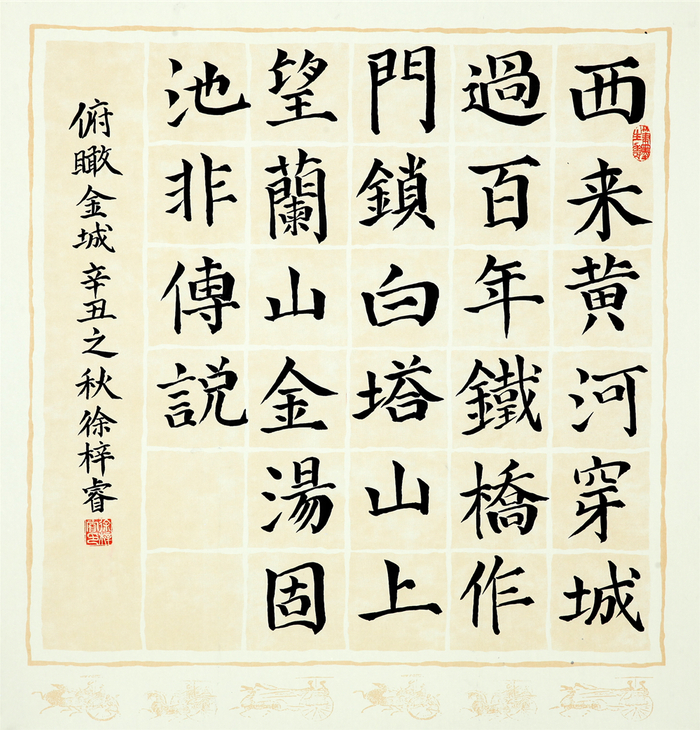 西来黄河穿城
過百年鐵橋作
門鎖白塔山上
望蘭山金湯固
池非傳説
俯瞰金城辛丑之秋徐梓睿